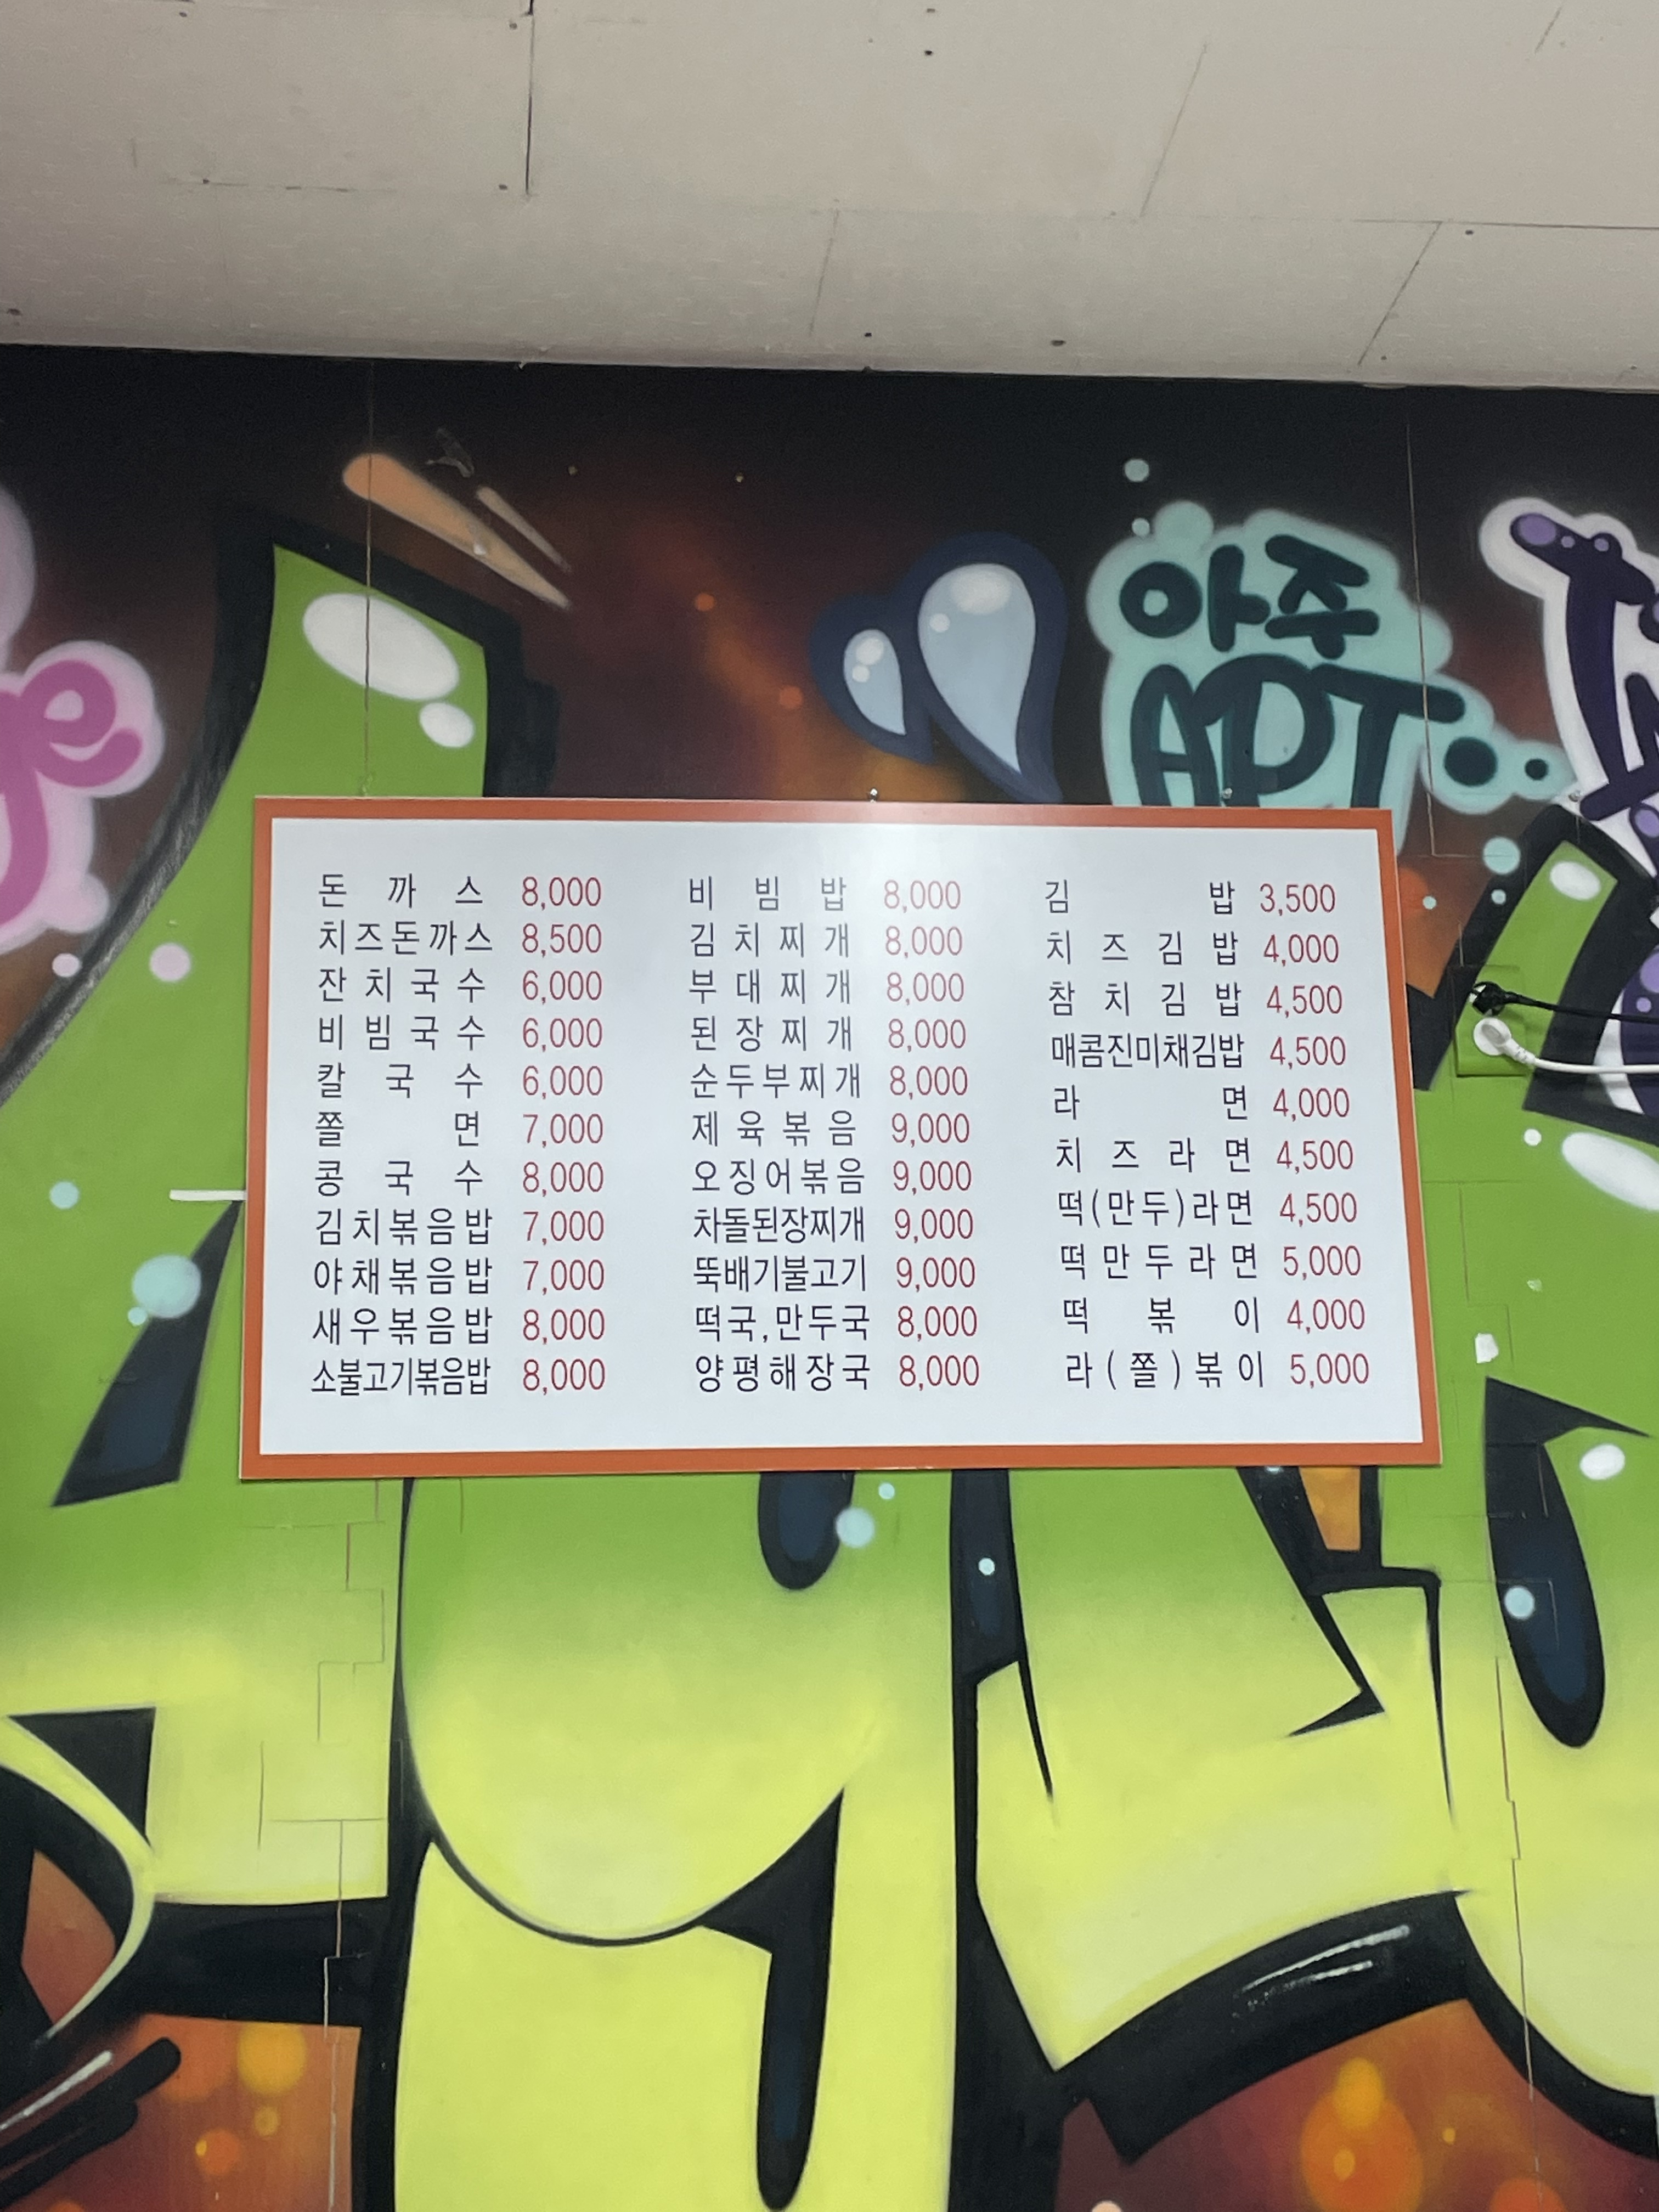 아주
APT
돈까스 8,000
치즈돈까스 8,500
잔치국수 6,000
비빔국수 6,000
칼국수 6,000
쫄면 7,000
콩국수 8,000
김치볶음밥 7,000
야채볶음밥 7,000
새우볶음밥 8,000
소불고기볶음밥 8,000
비빔밥 8,000
김치찌개 8,000
부대찌개 8,000
된장찌개 8,000
순두부찌개 8,000
제육볶음 9,000
오징어볶음 9,000
차돌된장찌개 9,000
뚝배기불고기 9,000
떡국,만두국 8,000
양평해장국 8,000
김밥 3,500
치즈김밥 4,000
참치김밥 4,500
매콤진미채김밥 4,500
라면 4,000
치즈라면 4,500
떡(만두)라면 4,500
떡만두라면 5,000
떡볶이 4,000
라(쫄)볶이 5,000